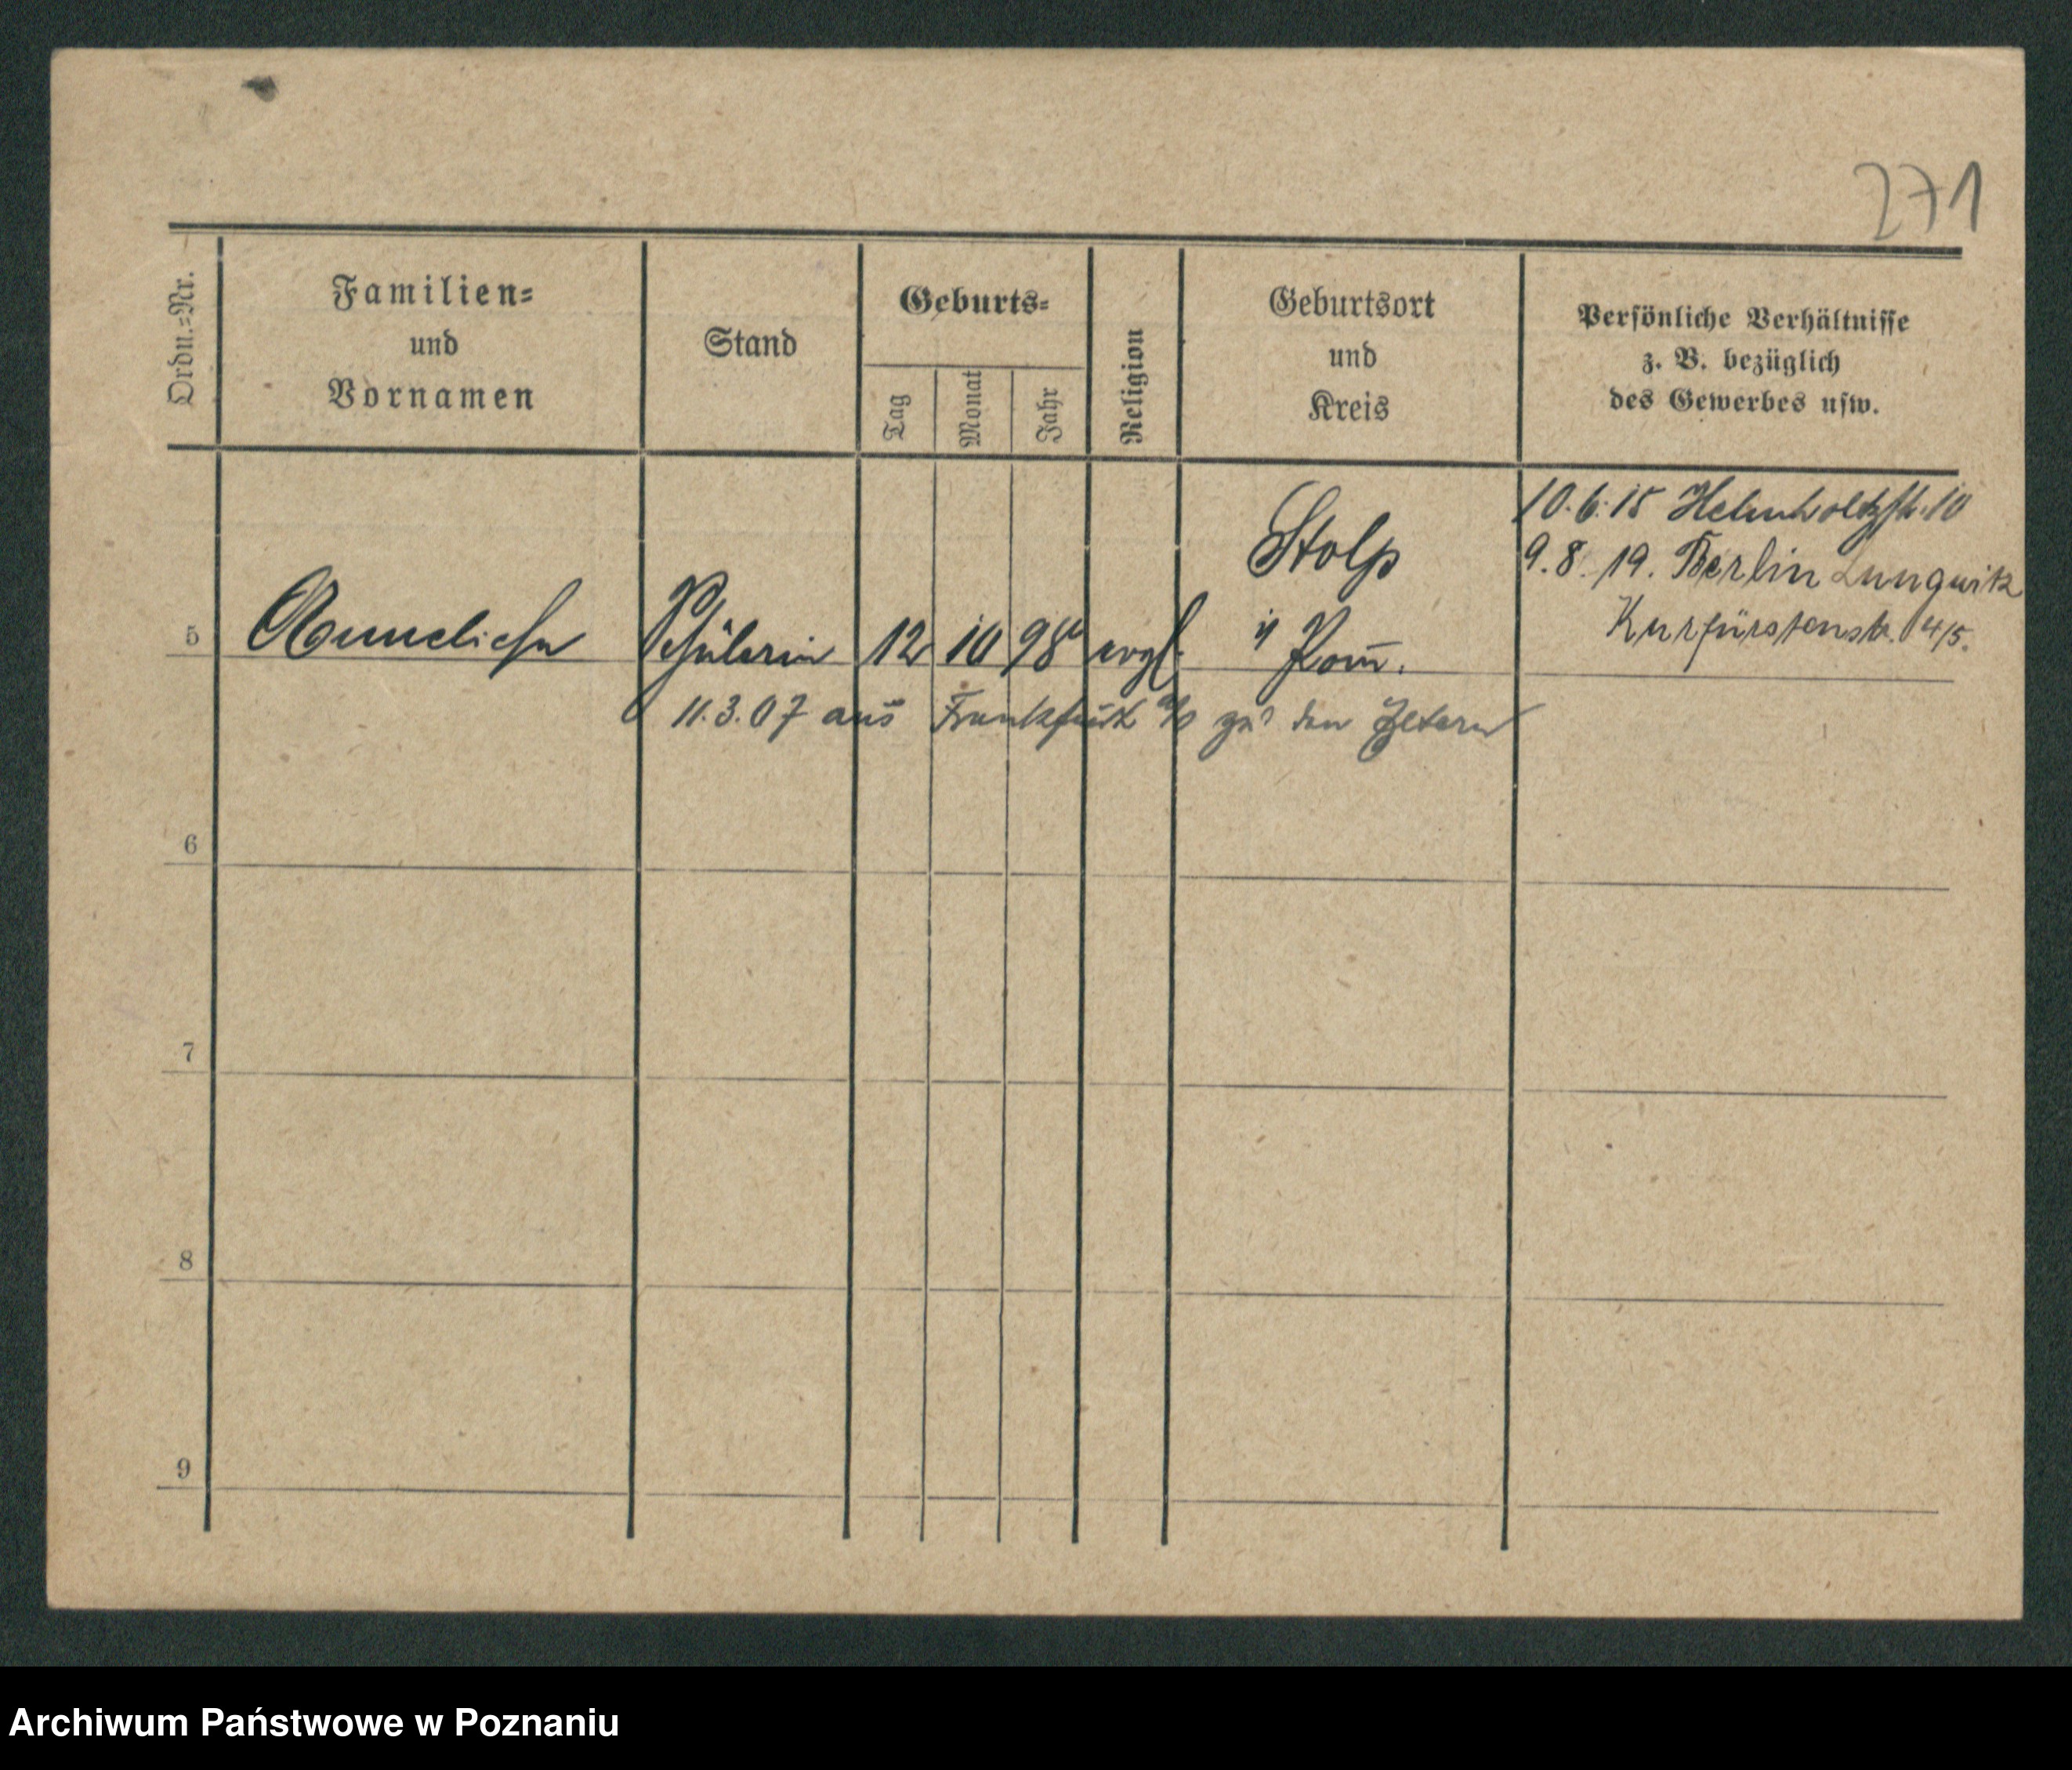 271
Ordn.=Nr.
Familien=
und
Vornamen
Stand
Geburts=
Tag
Monat
Jahr
Religion
Geburtsort
und
Kreis
Persönliche Verhältnisse
z. B. bezüglich
des Gewerbes usw.
10.6.15 Helmholtzstr. 10
Stolp
9.8.19. Berlin
5 Anneliese Schülerin 12 10 98 evgl. i/ Pom̄.
Kurfürstenstr. 4/5.
11.3.07 aus Frankfurt a/O zu den Eltern
6
7
8
9
Archiwum Państwowe w Poznaniu